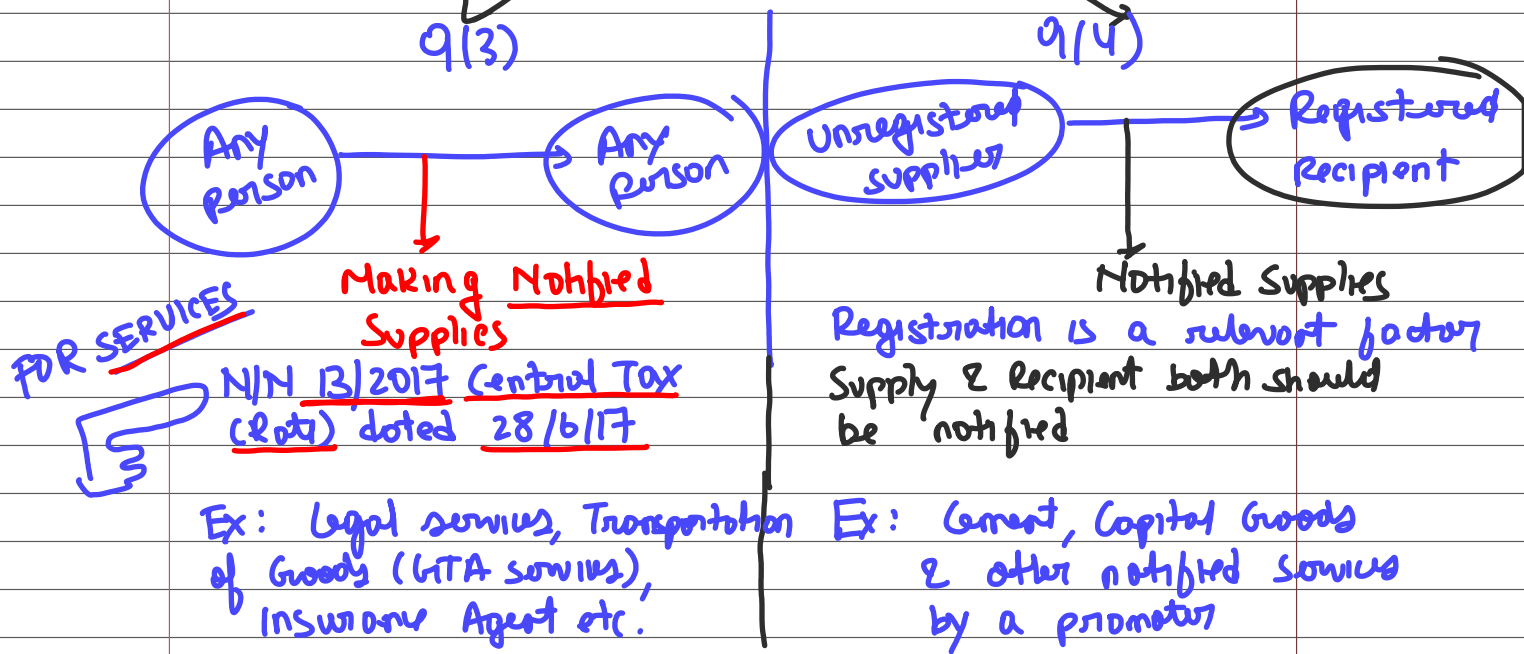 9(3)
Any
person
Any
person
Making Notified
Supplies
FOR SERVICES
N/N 13/2017 Central Tax
(Rate) dated 28/6/17
Ex: Legal services, Transportation
of Goods (GTA services),
Insurance Agent etc.
9(4)
Unregistered
supplier
Registered
Recipient
Notified Supplies
Registration is a relevant factor
Supply & Recipient both should
be notified
Ex: Cement, Capital Goods
& other notified services
by a promoter